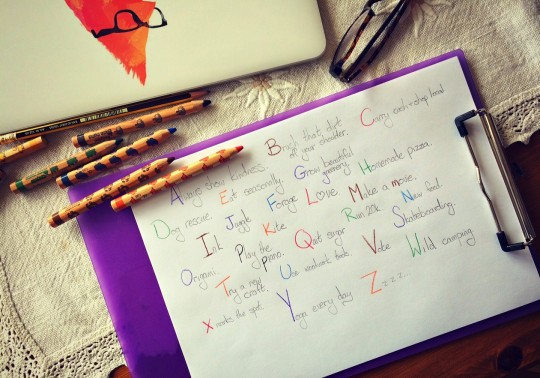 Always show kindness.
Brush that dirt
off your shoulder.
Carry cash + shop local
Dog rescue.
Eat seasonally.
Forge
Grow beautiful
Homemade pizza.
Ink
Juggle
Kite.
Love
Make a move.
New food.
Origami.
Play the
piano.
Quit sugar
Run 20k.
Skateboarding.
Try a new
craft.
Use
Vote
Wild camping
X marks the spot.
Yoga every day
Zzzz...